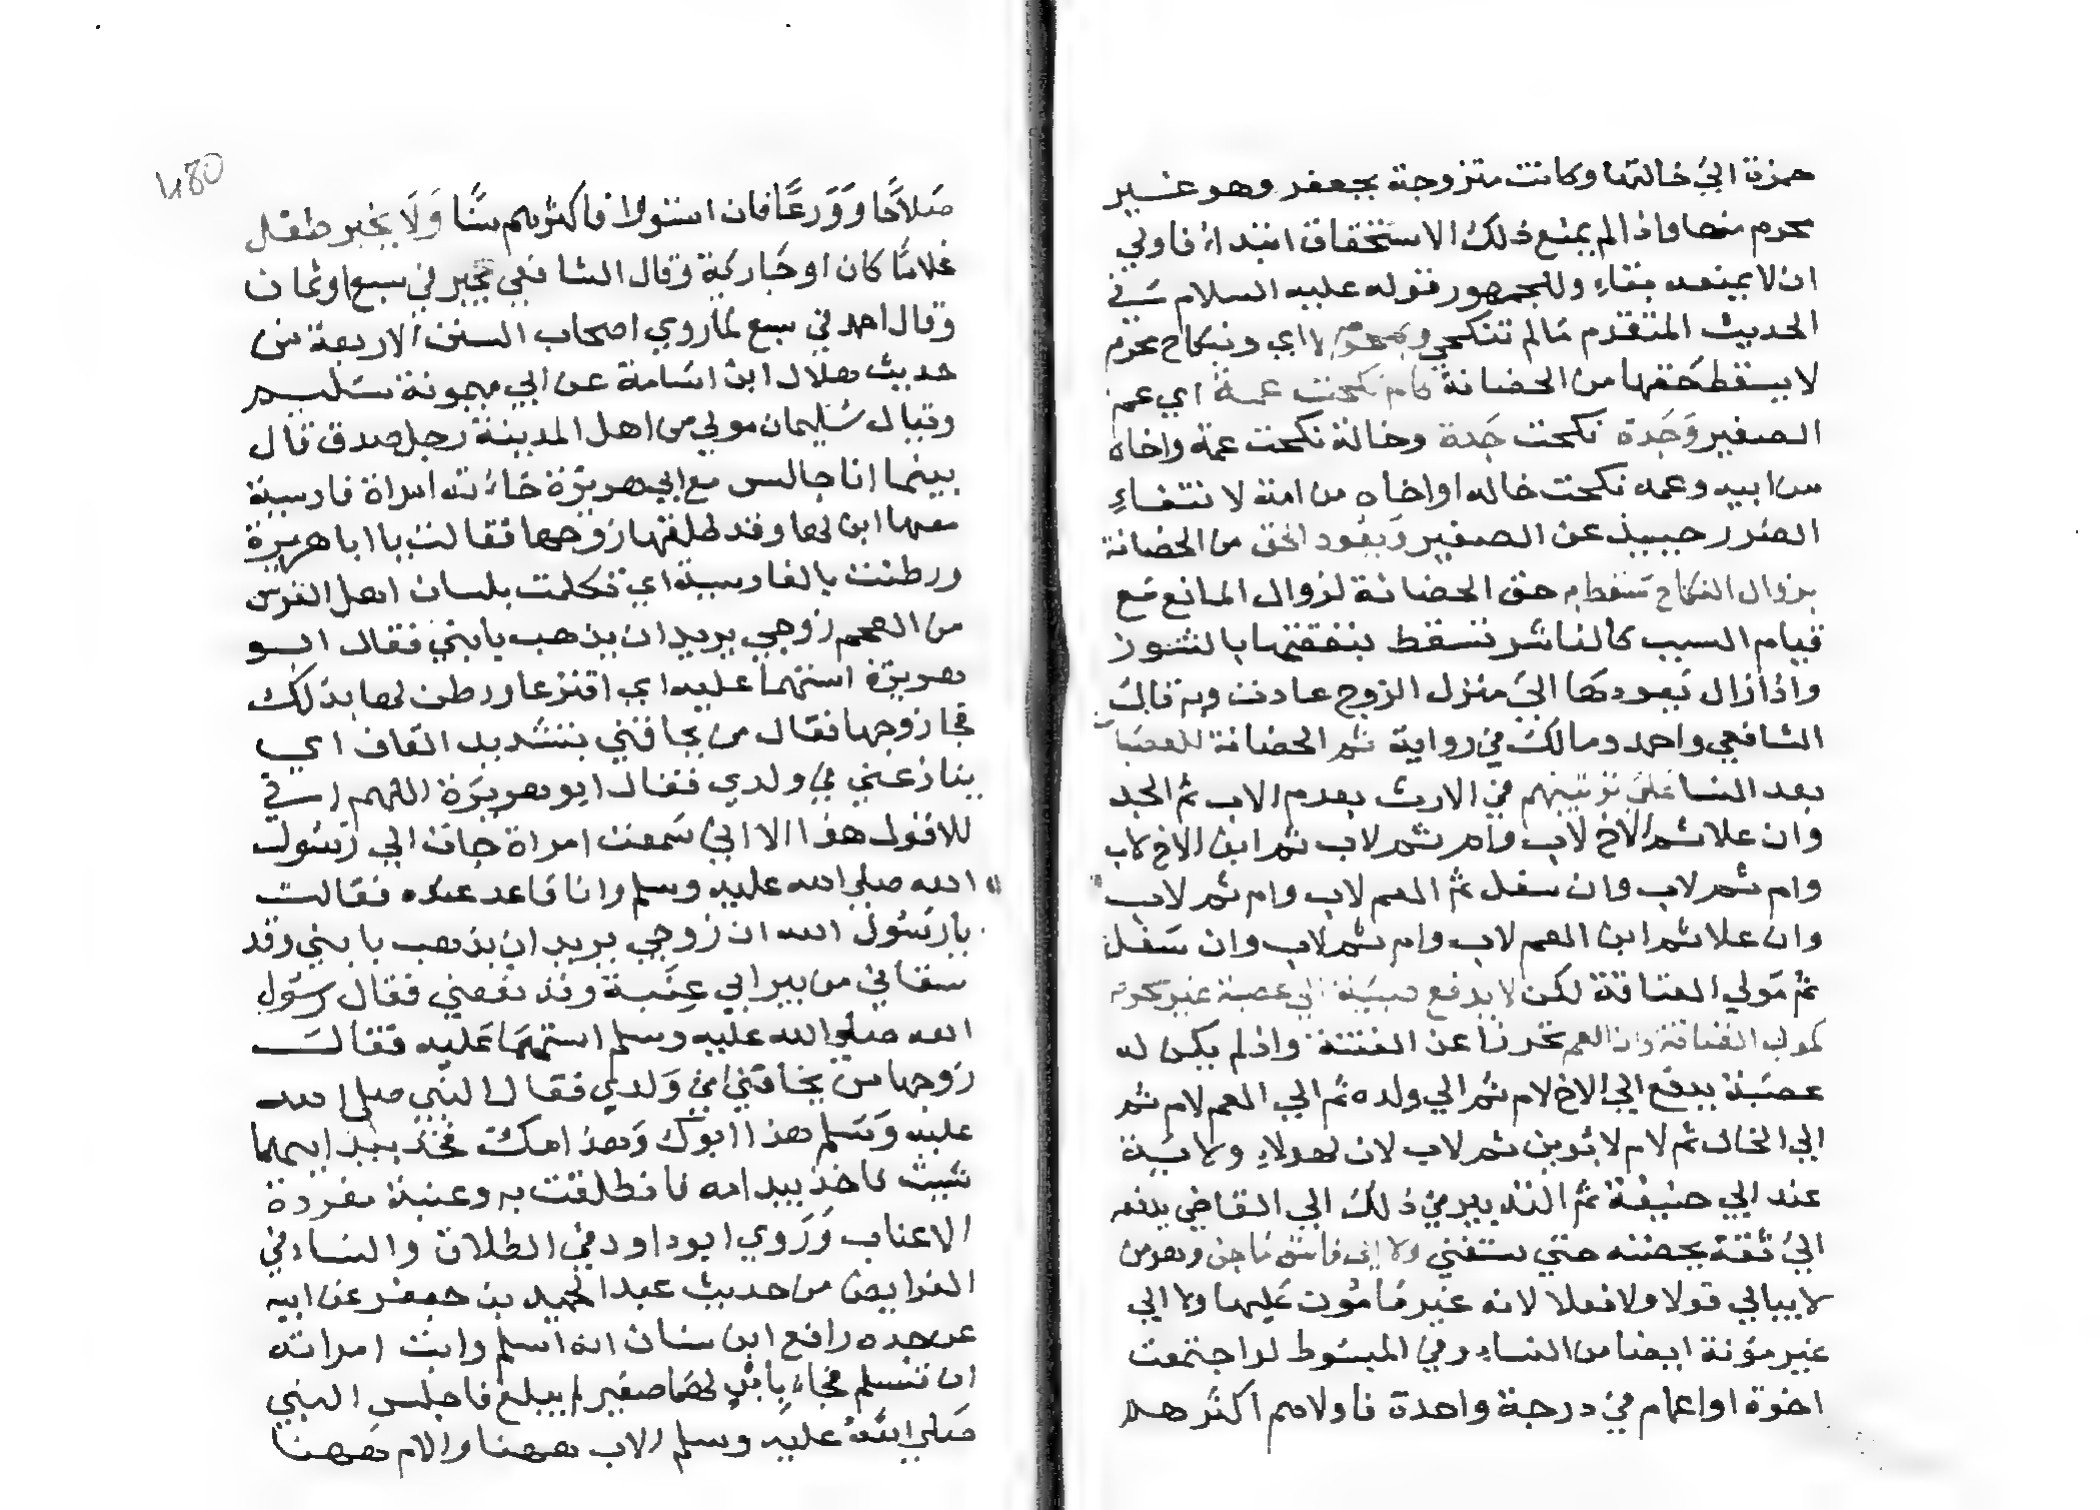 حمزة الي خالتها وكانت متزوجة بجعفر وهو غير
محرم منها واذا لم يمنع ذلك الاستحقاق ابتداء فاولي
ان لا يمنعه بقاء وللجمهور قوله عليه السلام في
الحديث المتقدم مالم تنكحي لا اي ونكاح محرم
لا يسقط حقها من الحضانة كام نكحت عمه اي عم
الصغير وجدة نكحت جده وخالة نكحت عمه واخاه
من ابيه وعمه نكحت خاله او اخاه من امه لانتفاء
الضرر حينيذ عن الصغير ويعود الحق من الحضانة
بزوال النكاح حق الحضانة لزوال المانع مع
قيام السبب كالناشز تسقط نفقتها بالنشوز
واذا زال بعودها الي منزل الزوج عادت وبه قال
الشافعي واحمد ومالك في رواية ثم الحضانة للعصبات
بعد النسا علي ترتيبهم في الارث بعدم الاب ثم الجد
وان علا ثم الاخ لاب وام ثم لاب ثم ابن الاخ لاب
وام ثم لاب وان سفل ثم العم لاب وام ثم لاب
وان علا ثم ابن العم لاب وام ثم لاب وان سفل
ثم مولي العتاقة لكن لا يدفع صبية الي عصبة غير محرم
كمولي العتاقة وابن العم تحرزا عن الفتنة واذا لم يكن له
عصبة يدفع الي الاخ لام ثم الي ولده ثم الي العم لام ثم
الي الخال ثم لام لابوين ثم لاب لان لهولاء ولاية
عند ابي حنيفة ثم التدبير في ذلك الي القاضي يدفعه
الي ثقة يحضنه حتي يستغني ولا الي فاسق ماجن وهو من
لا يبالي قولا ولا فعلا لانه غير مامون عليها ولا الي
غير مؤنة ايضا من النساء وفي المبسوط لو اجتمعت
اخوة او اعمام في درجة واحدة فاولاهم اكثرهم
480
صلاحا وورعا فان استووا فاكثرهم سنا ولا يخير طفل
غلاما كان او جارية وقال الشافعي يخير في سبع او ثمان
وقال احمد في سبع لما روي اصحاب السنن الاربعة من
حديث هلال ابن اسامة عن ابي ميمونة سليم
ويقال سليمان مولي من اهل المدينة رجل صدق قال
بينما انا جالس مع ابي هريرة جائته امراة فارسية
معها ابن لها وقد طلقها زوجها فقالت يا ابا هريرة
ورطنت بالفارسية اي تكلمت بلسان اهل الفرس
من العجم زوجي يريد ان يذهب بابني فقال ابو
هريرة استهما عليه اي اقترعا ورطن لها بذلك
فجا زوجها فقال من يحاقني بتشديد القاف اي
ينازعني في ولدي فقال ابو هريرة اللهم اني
لا اقول هذا الا اني سمعت امراة جات الي رسول
الله صلي الله عليه وسلم وانا قاعد عنده فقالت
يا رسول الله ان زوجي يريد ان يذهب بابني وقد
سقاني من بير ابي عنبة وقد نفعني فقال رسول
الله صلي الله عليه وسلم استهما عليه فقال
زوجها من يحاقني في ولدي فقال النبي صلي الله
عليه وسلم هذا ابوك وهذه امك فخذ بيد ايهما
شيت فاخذ بيد امه فانطلقت به وعنبة مفردة
الاعناب وروي ابو داود في الطلاق والنساء في
الفرايض من حديث عبد الحميد بن جعفر عن ابيه
عن جده رافع ابن سنان انه اسلم وابت امراته
ان تسلم فجاء بابن لهما صغير لم يبلغ فاجلس النبي
صلي الله عليه وسلم الاب ههنا والام ههنا